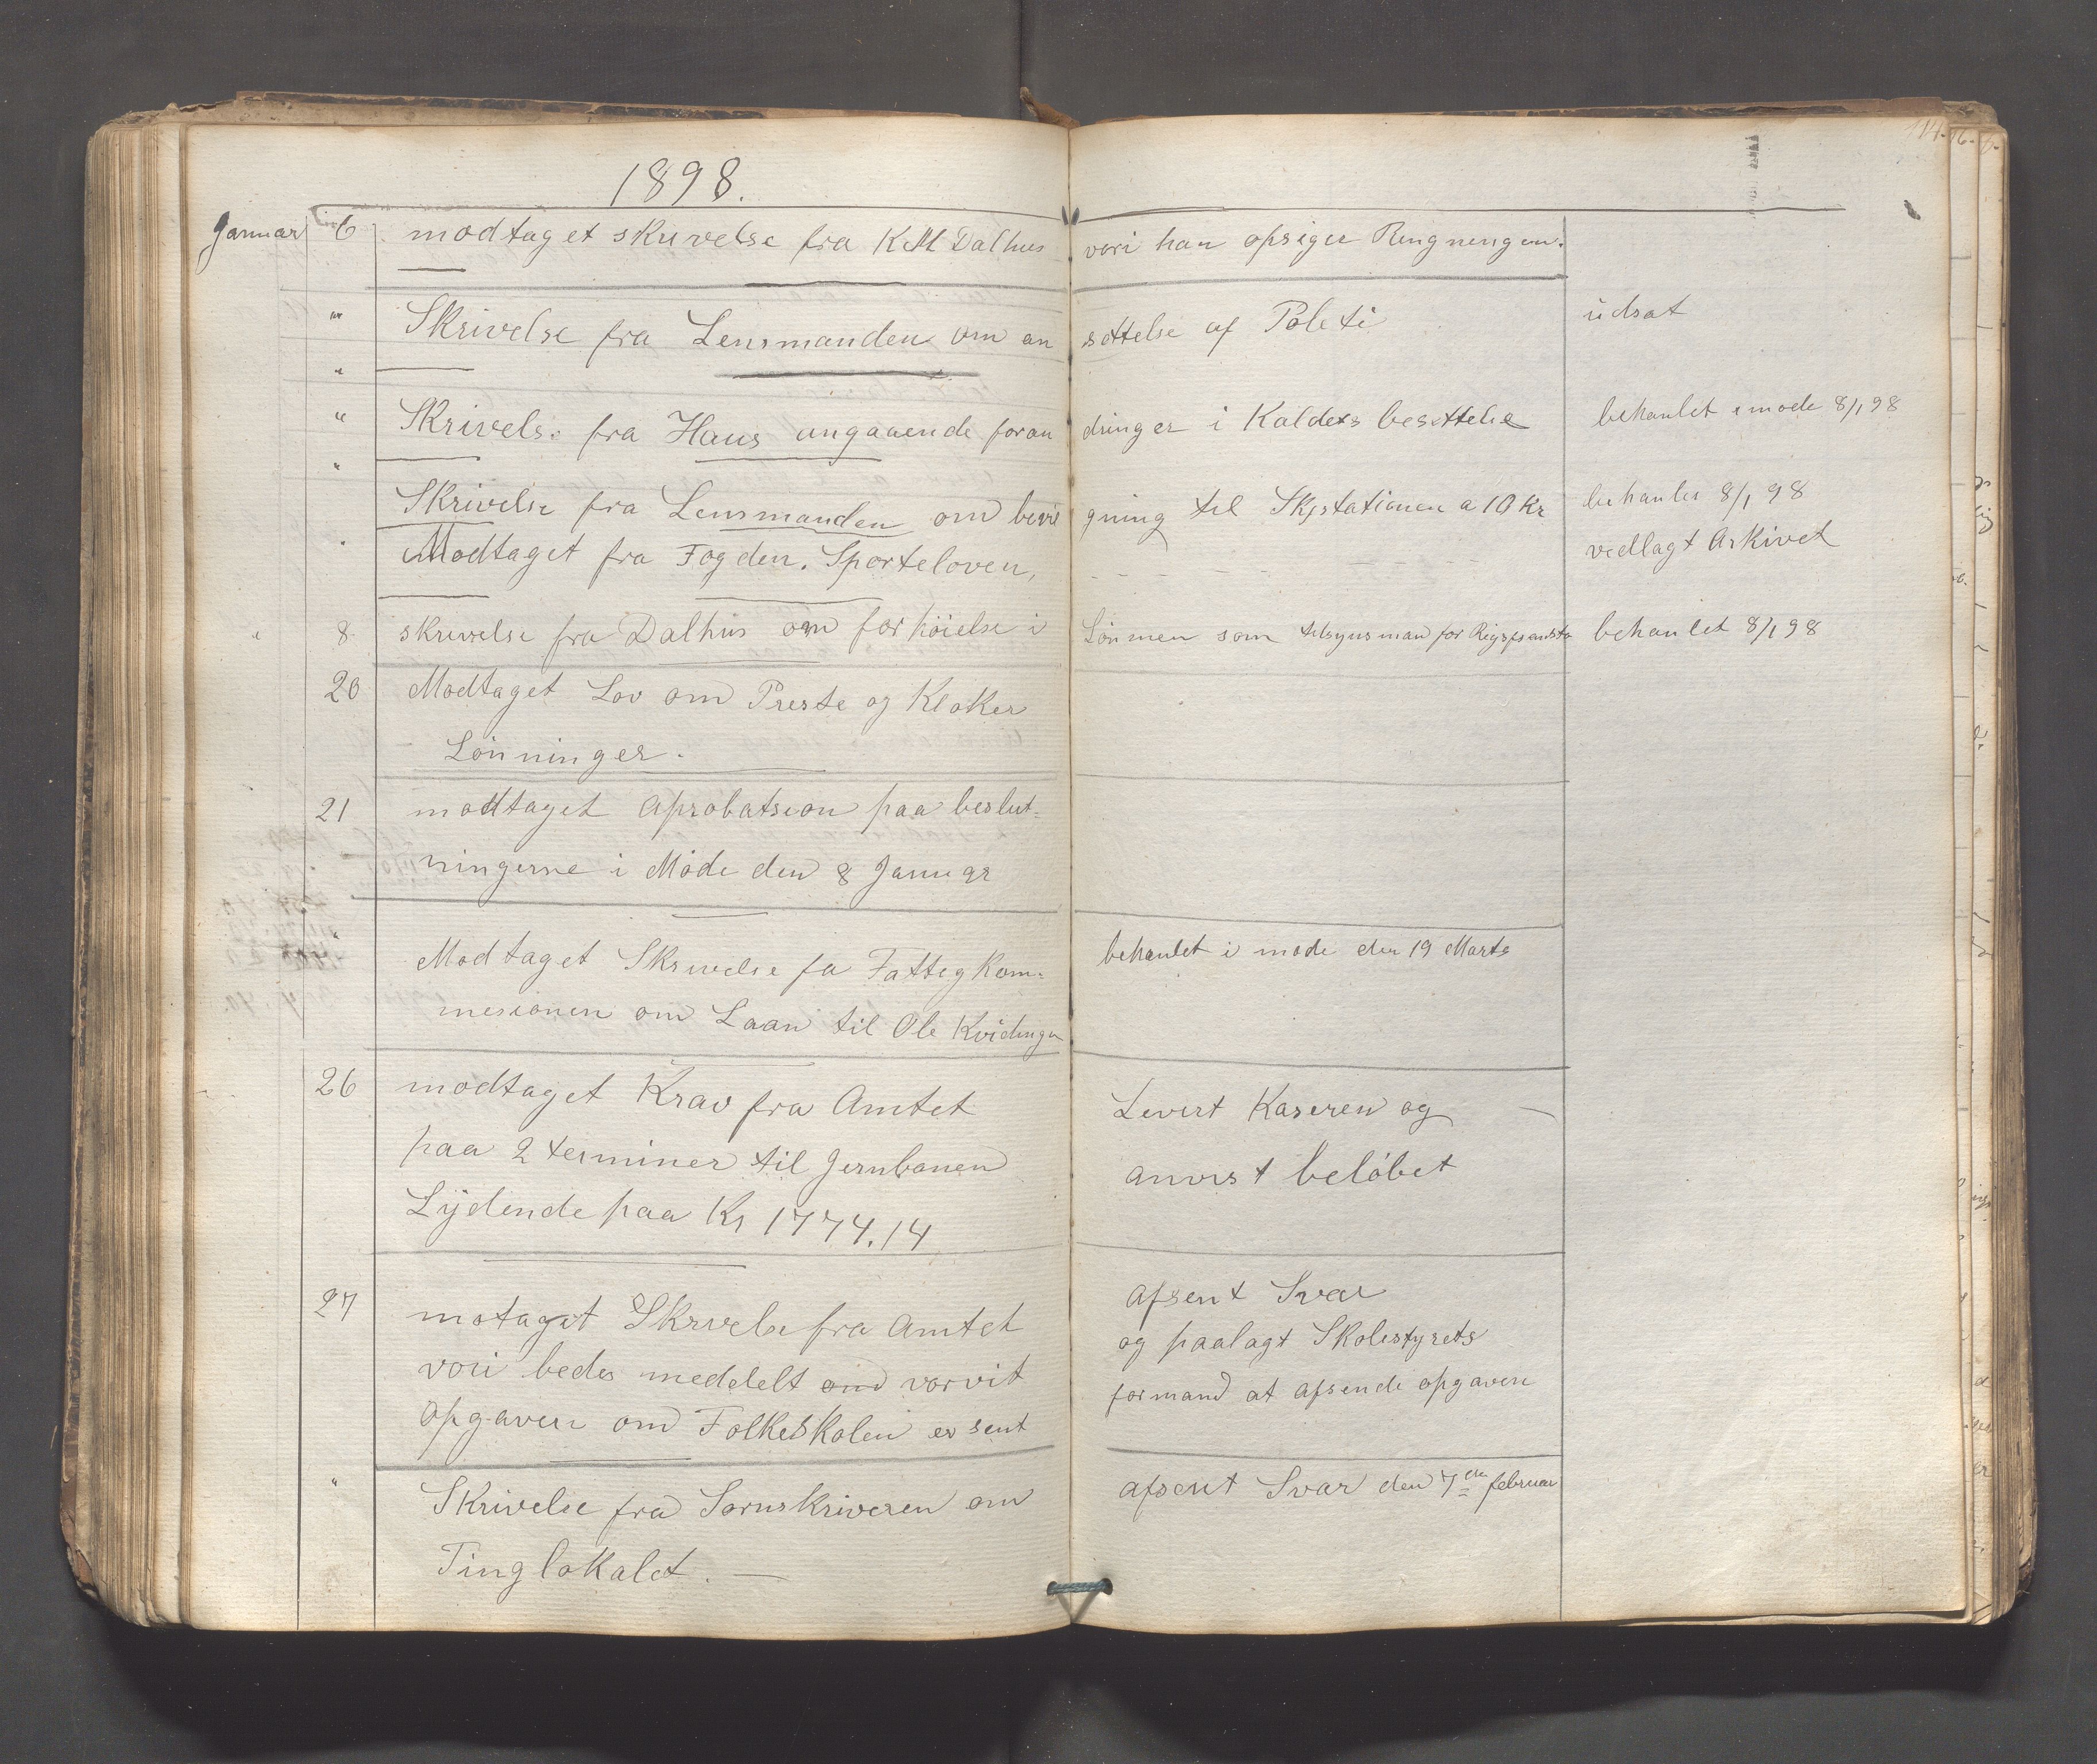 1898.
Januar 6 modtaget skrivelse fra K M Dalhus vori han opsiger Ringningen.
" Skrivelse fra Lensmanden om an sættelse af Poleti udsat
"
" Skrivelse fra Haus angaaende foran dringer i Kaldets besettelse behanlet i mode 8/1 98
"
Skrivelse fra Lensmanden om bevil gning til Skjstationen a 10 Kr behanlet 8/1 98
Modtaget fra Fogden. Sporteloven, vedlagt Arkivet
" 8 skrivelse fra Dalhus om forhöielse i Lönnen som tilsynsman for behanlet 8/1 98
20 Modtaget Lov om Preste og Kloker
Lönninger.
21 modtaget Aprobatsion paa beslut-
ningerne i Möde den 8 Januar
" Modtaget Skrivelse fa Fatteg Kom- behanlet i mode den 19 Marts
mesionen om Laan til Ole Kvidinge
26 modtaget Krav fra Amtet Levert Kaseren og
paa 2 terminer til Jernbanen anvist belöbet
Lydende paa Kr 1774.14
27 motaget Skrivelse fra Amtet afsent Svar
vori bedes meddelt om vorvit og paalagt Skolestyrets
opgaven om Folkeskolen er sent formand at afsende opgaven
" Skrivelse fra Sornskriveren om afsent Svar den 7de februar
Tinglokalet.